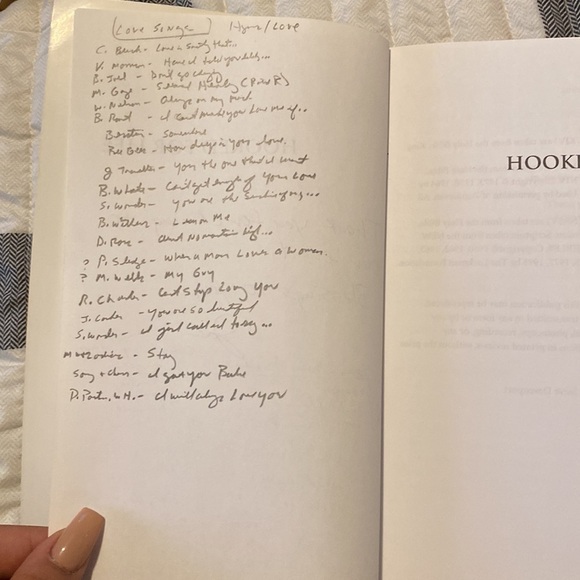 Love Songs Hymn/Love
C. Black - Love is surely that...
V. Morrison - Have I told you lately..
B. Joel - Don't go changing
M. Gaye - Sexual Healing
W. Nelson - Always on my mind
B. Raitt - I can't make you love me if..
Beatles - Something
Bee Gees - How deep is your love,
J. Travolta - You're the one that I want
B. White - Can't get enough of your love
S. Wonder - You are the sunshine of my...
B. Withers - Lean on Me
D. Ross - Ain't No mountain high...
? P. Sledge - When a Man Loves a Woman.
? M. Wells - My Guy
R. Charles - Can't stop loving you
J. Cocker - You are so beautiful
S. Wonder - I just called to say...
M + Zodiacs - Stay
Sony + Cher - I got you Babe
D. Parton, W. H. - I will always Love you
HOOKE